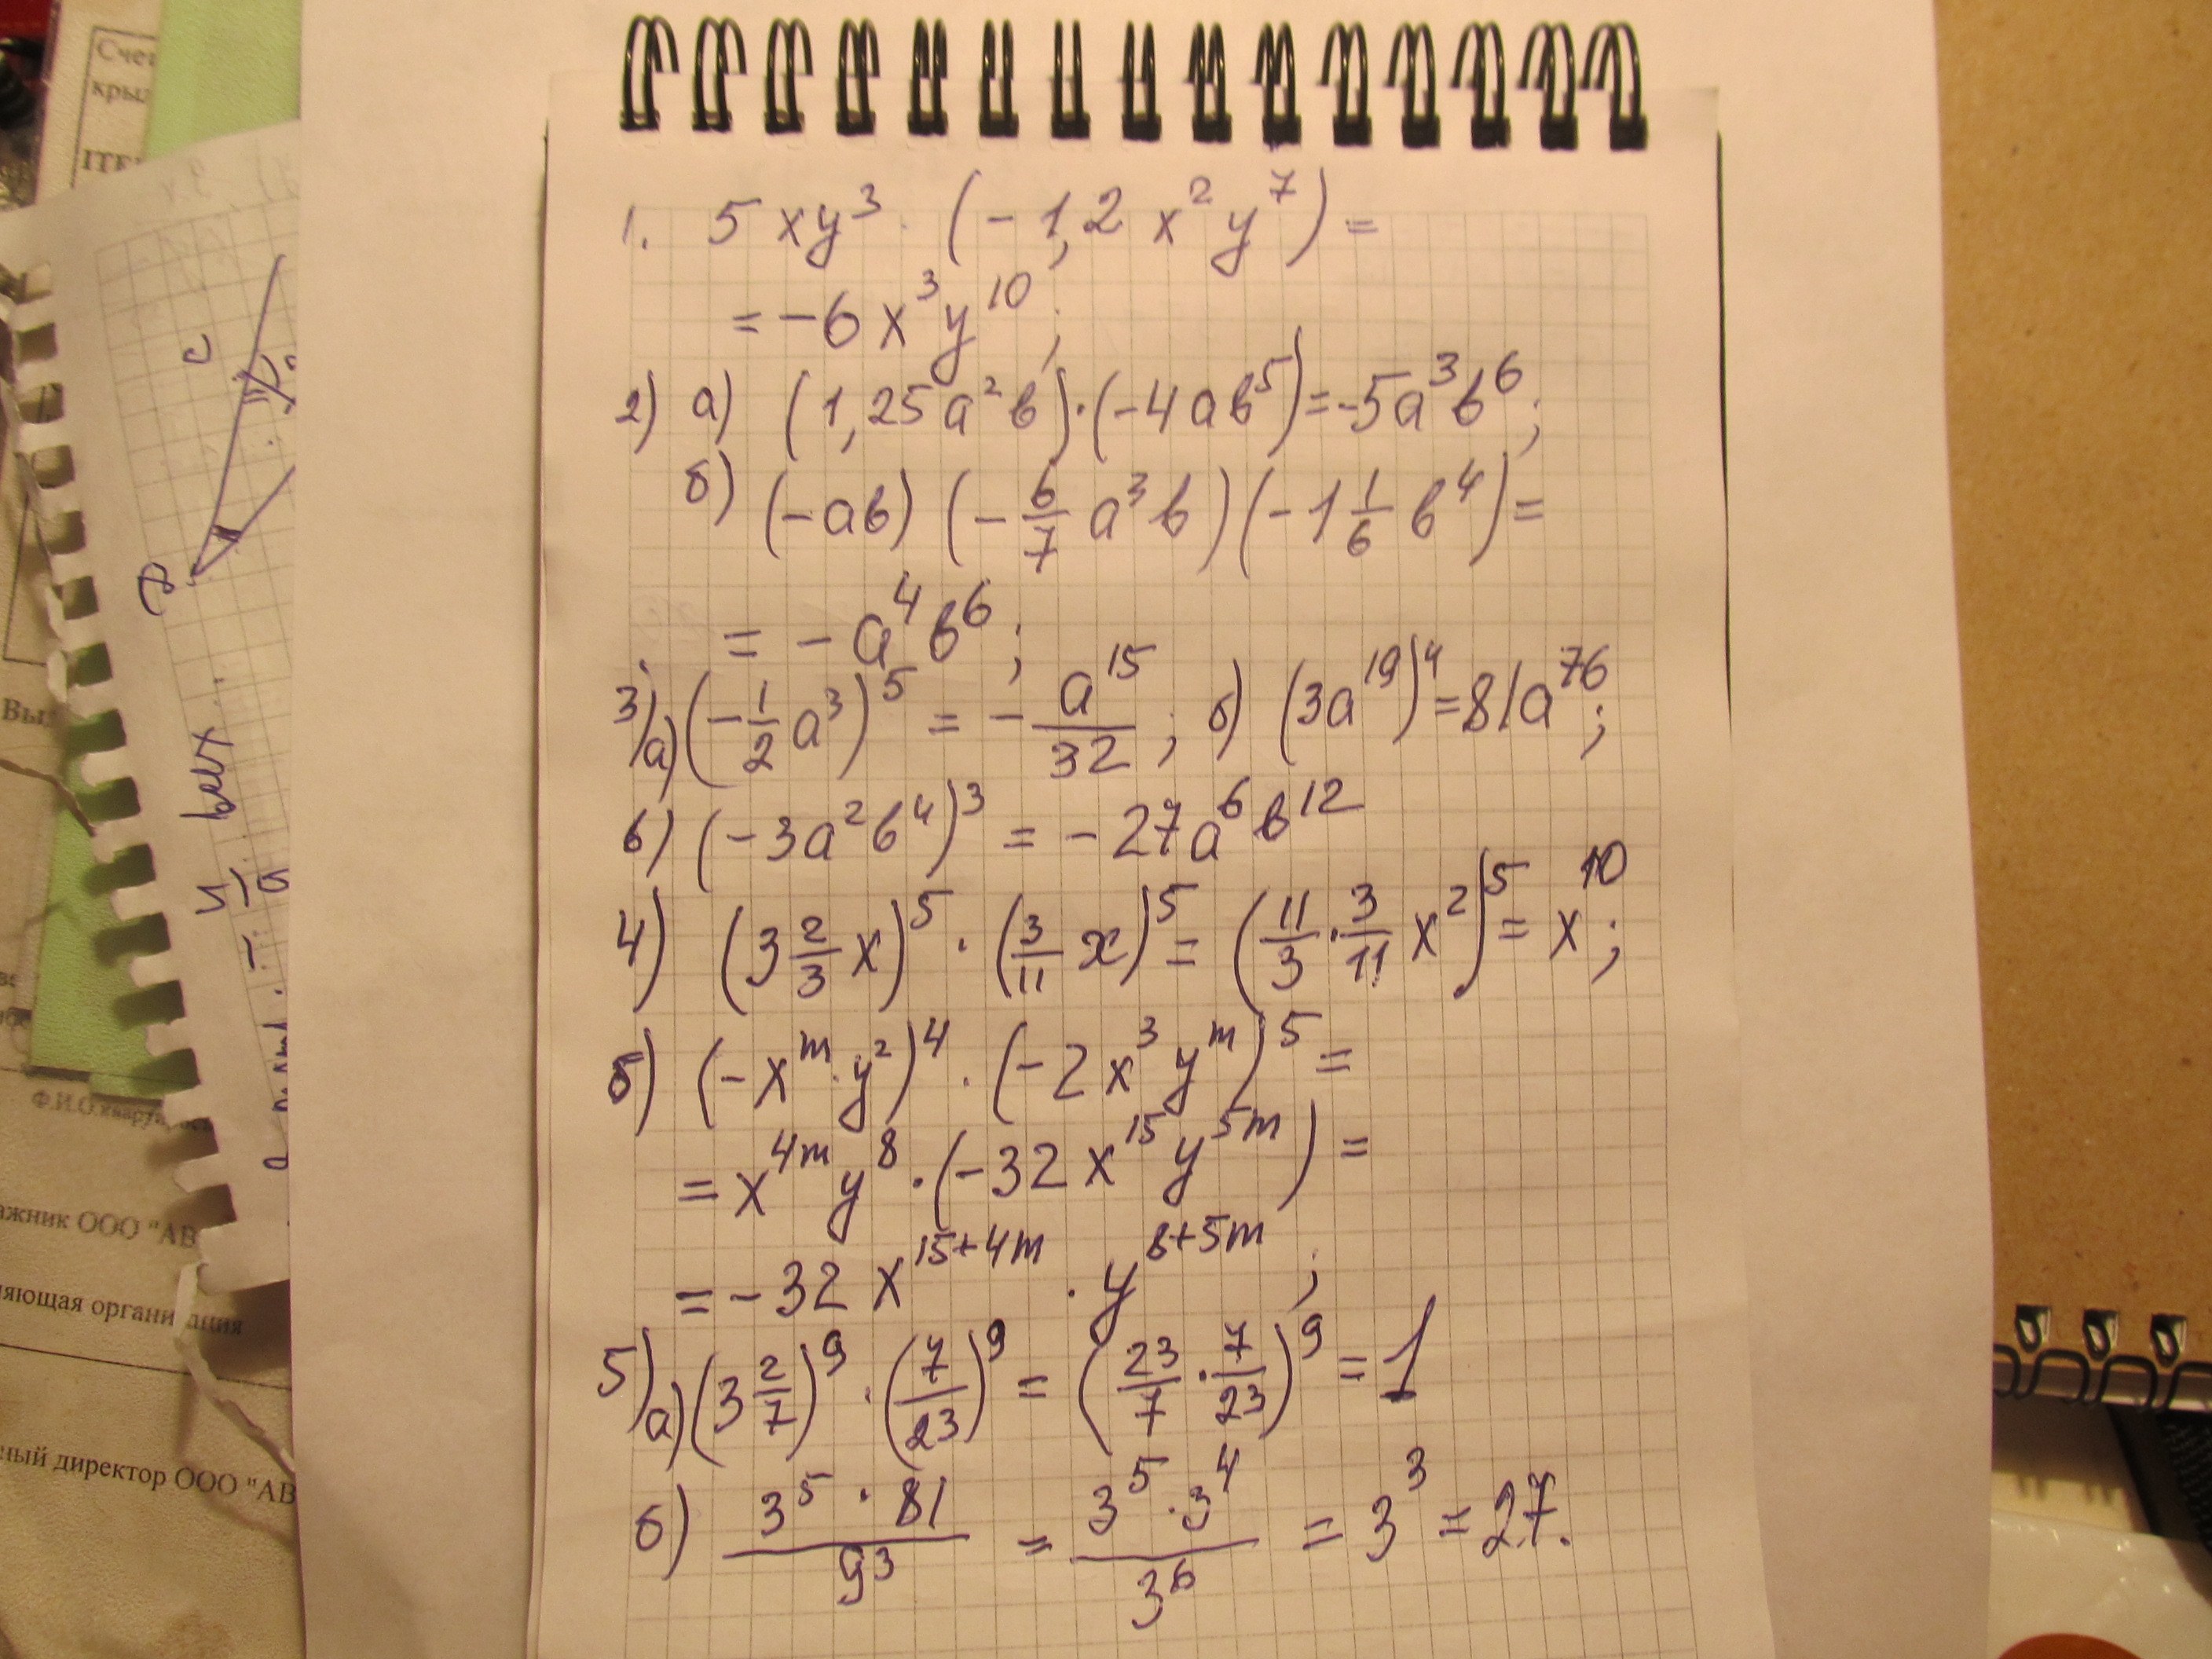 Счет
крыл
ITE
C
P
Вы
и вых.
Ф.И.О.кварти
ажник ООО "АВ
ляющая организация
ный директор ООО "АВ
1. 5xy³ · (-1,2x²y⁷) =
= -6x³y¹⁰;
2) а) (1,25a²b)·(-4ab⁵)=-5a³b⁶;
б) (-ab) (-6/7 a³b)(-1 1/6 b⁴)=
= -a⁴b⁶;
3) а) (-1/2 a³)⁵ = -a¹⁵/32; б) (3a¹⁹)⁴=81a⁷⁶;
в) (-3a²b⁴)³ = -27a⁶b¹²
4) (3 2/3 x)⁵ · (3/11 x)⁵ = (11/3 · 3/11 x²)⁵ = x¹⁰;
б) (-xᵐ·y²)⁴ · (-2x³yᵐ)⁵ =
= x⁴ᵐy⁸·(-32x¹⁵y⁵ᵐ) =
= -32x¹⁵⁺⁴ᵐ · y⁸⁺⁵ᵐ;
5) а) (3 2/7)⁹ · (7/23)⁹ = (23/7 · 7/23)⁹ = 1
б) 3⁵ · 81/9³ = 3⁵ · 3⁴/3⁶ = 3³ = 27.